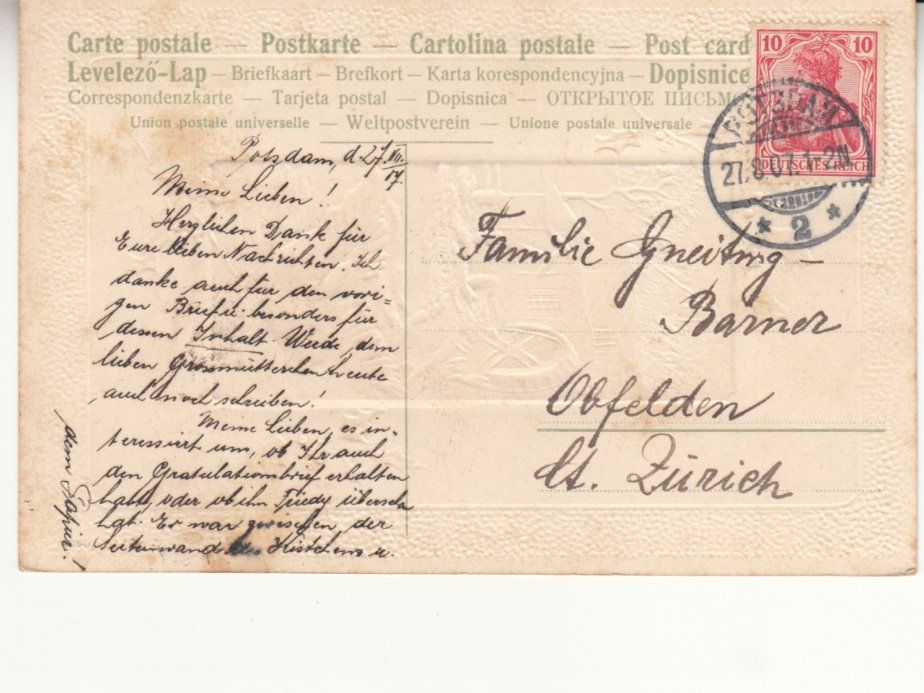 Carte postale — Postkarte — Cartolina postale — Post card
Levelező-Lap — Briefkaart — Brefkort — Karta korespondencyjna — Dopisnice
Correspondenzkarte — Tarjeta postal — Dopisnica — ОТКРЫТОЕ ПИСЬМО
Union postale universelle — Weltpostverein — Unione postale universale —
10 10
DEUTSCHES REICH
POTSDAM
27.8.07.1-2N.
* 2 *
Potsdam, d. 27. VIII.
07.
Meine Lieben!
Herzlichen Dank für
Eure lieben Nachrichten. Ich
danke auch für den vori-
gen Brief u. besonders für
dessen Inhalt. Werde dem
lieben Grossmütterchen heute
auch noch schreiben!
Meine Lieben, es in-
teressiert uns, ob Ihr auch
den Gratulationsbrief erhalten
habt, oder ob ihn
hat. Er war zwischen der
Seitenwand des Kistchens u.
dem Papier!
Familie Gneiting-
Barner
Obfelden
Ct. Zürich